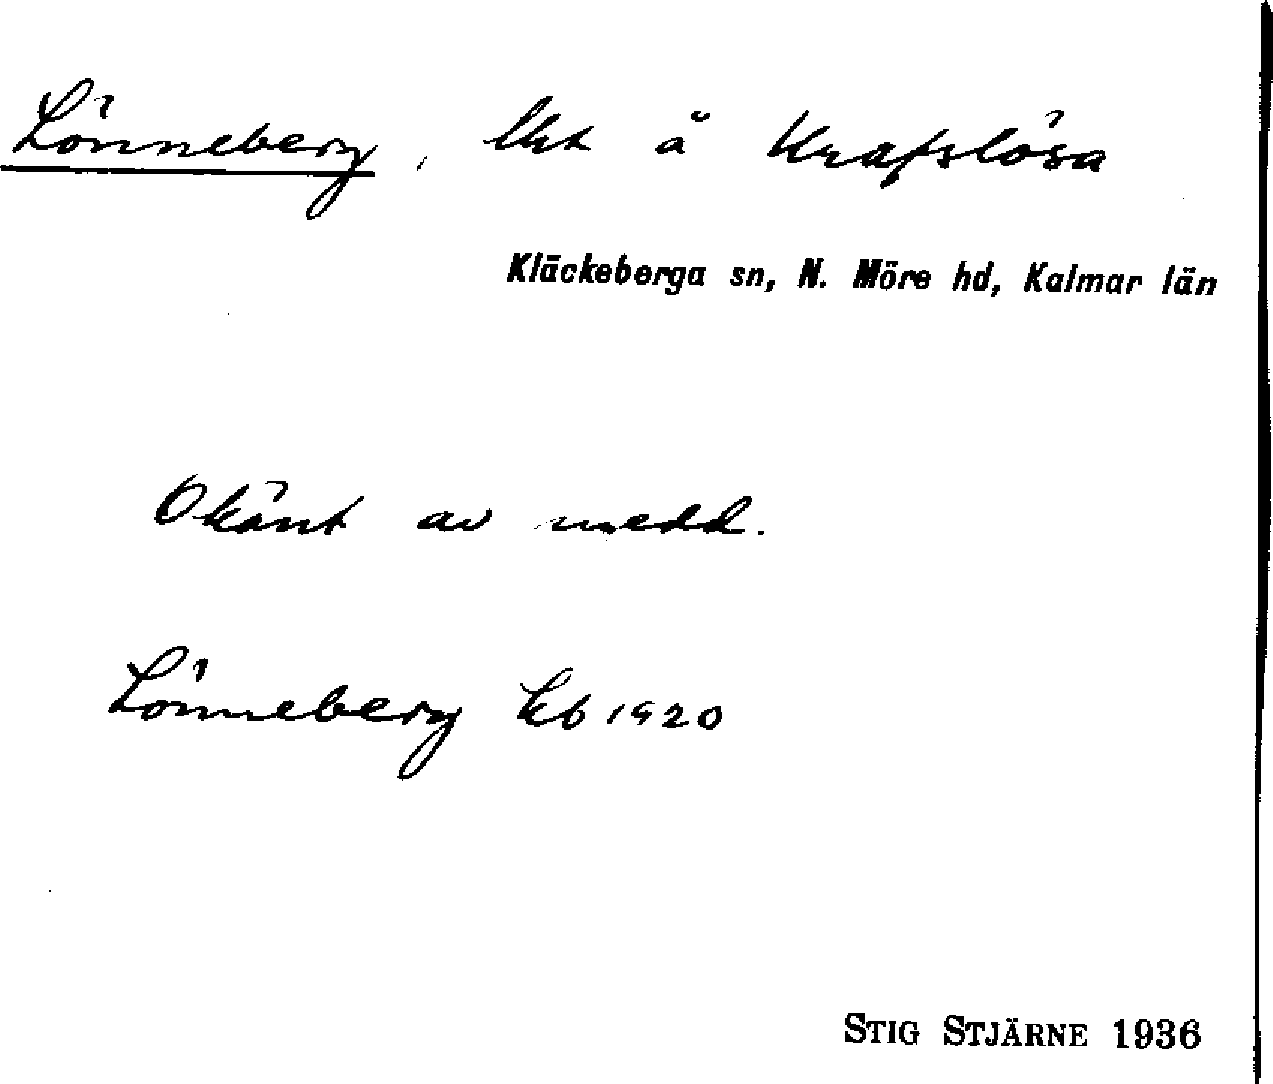 Lönneberg, lht å Krafslösa
Kläckeberga sn, N. Möre hd, Kalmar län
Okänt av medd.
Lönneberg kb 1920
STIG STJÄRNE 1936